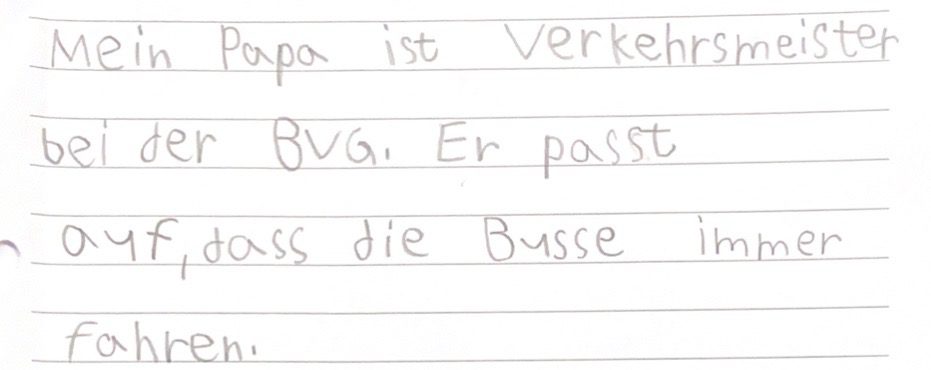 Mein Papa ist Verkehrsmeister
bei der BVG. Er passt
auf, dass die Busse immer
fahren.